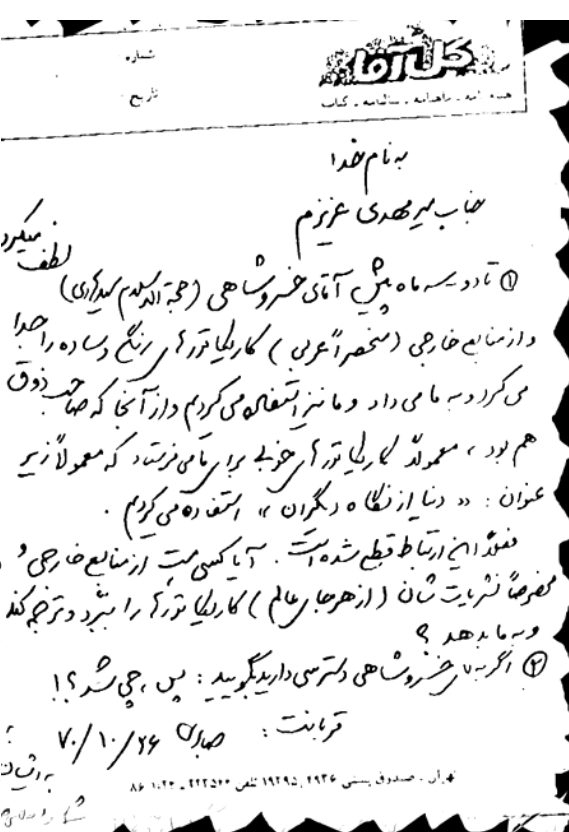 گل آقا
هفته نامه ـ ماهنامه ـ سالنامه ـ کتاب
شماره:
تاریخ:
به نام خدا
جناب میر مهدی عزیزم
① تا دو سه ماه پیش آقای خسروشاهی (حجة الاسلام سید هادی) لطف میکرد
و از منابع خارجی (منحصراً عربی) کاریکاتورهای رنگی و ساده را جدا
می کرد و به ما می داد و ما نیز استفاده می کردیم و از آنجا که صاحب ذوق
هم بود، معمولاً کاریکاتورهای خوبی برای ما می فرستاد که معمولاً زیر
عنوان: «دنیا از نگاه دیگران»، استفاده می کردیم.
فعلاً این ارتباط قطع شده است. آیا کسی هست از منابع خارجی و
مخصوصاً نشریات شان (از هر جای عالم) کاریکاتورها را ببُرد و ترجمه کند
و به ما بدهد؟
② اگر به آقای خسروشاهی دسترسی دارید بگویید: پس، چی شد؟!
قربانت: صابری ۷۰/۱۰/۲۶
تهران ـ صندوق پستی ۴۹۳۶ـ۱۹۳۹۵ تلفن